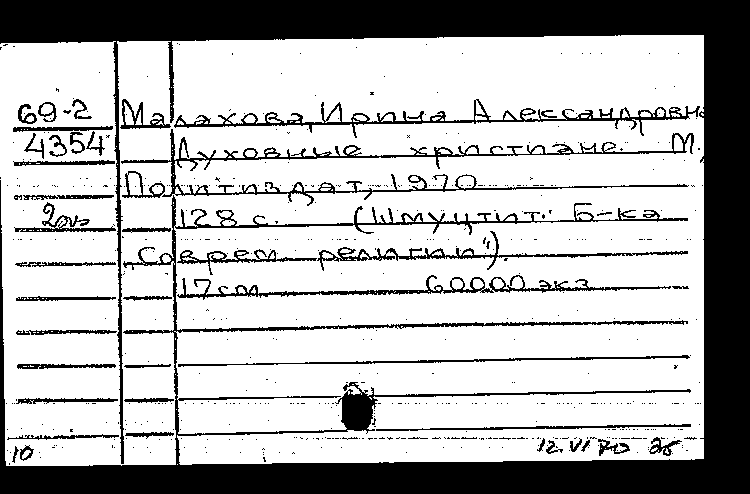 69-2 Малахова, Ирина Александровна
4354 Духовные христиане. М.,
Политиздат, 1970
128 с. (Шмуцтит.: Б-ка
"Соврем. религии").
17 см 60000 экз
10 12.VI 70